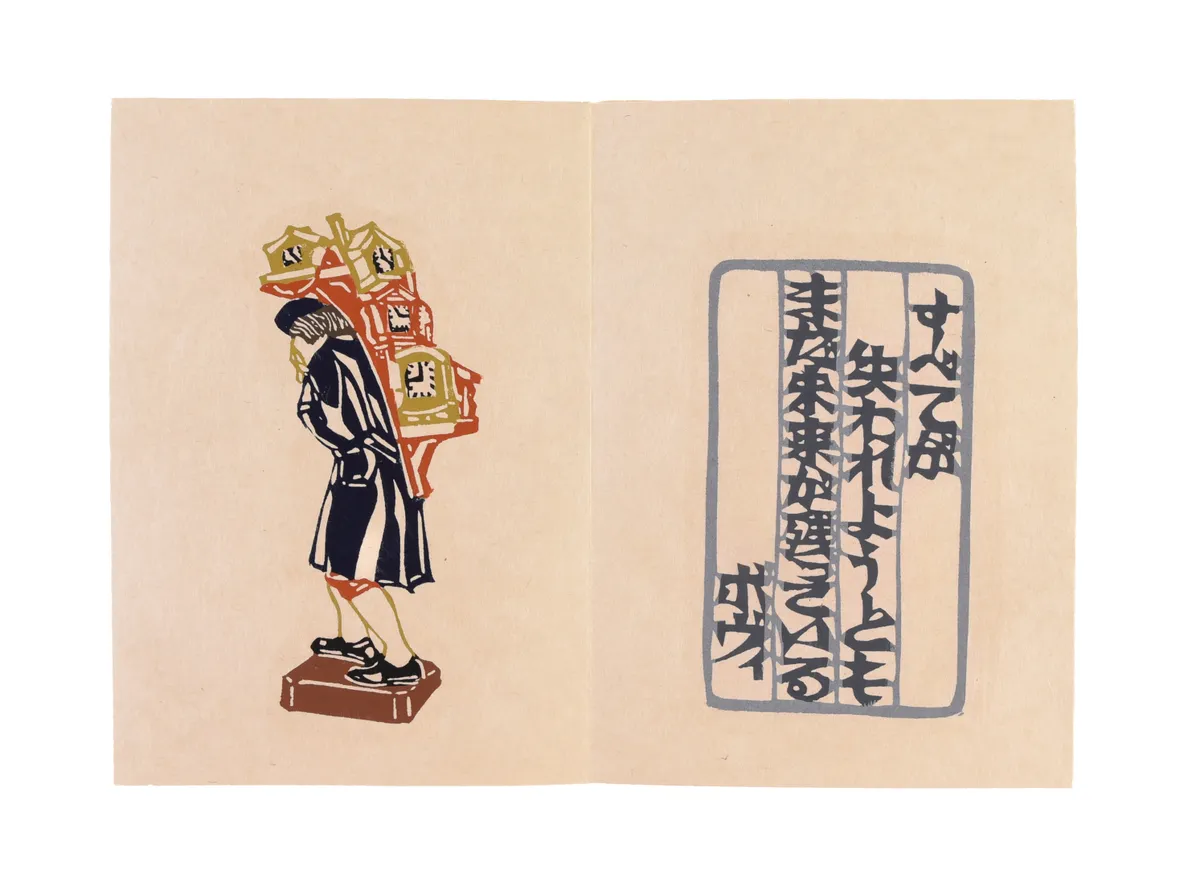 すべてが
失われようとも
まだ未来が残っている
ボヴィ